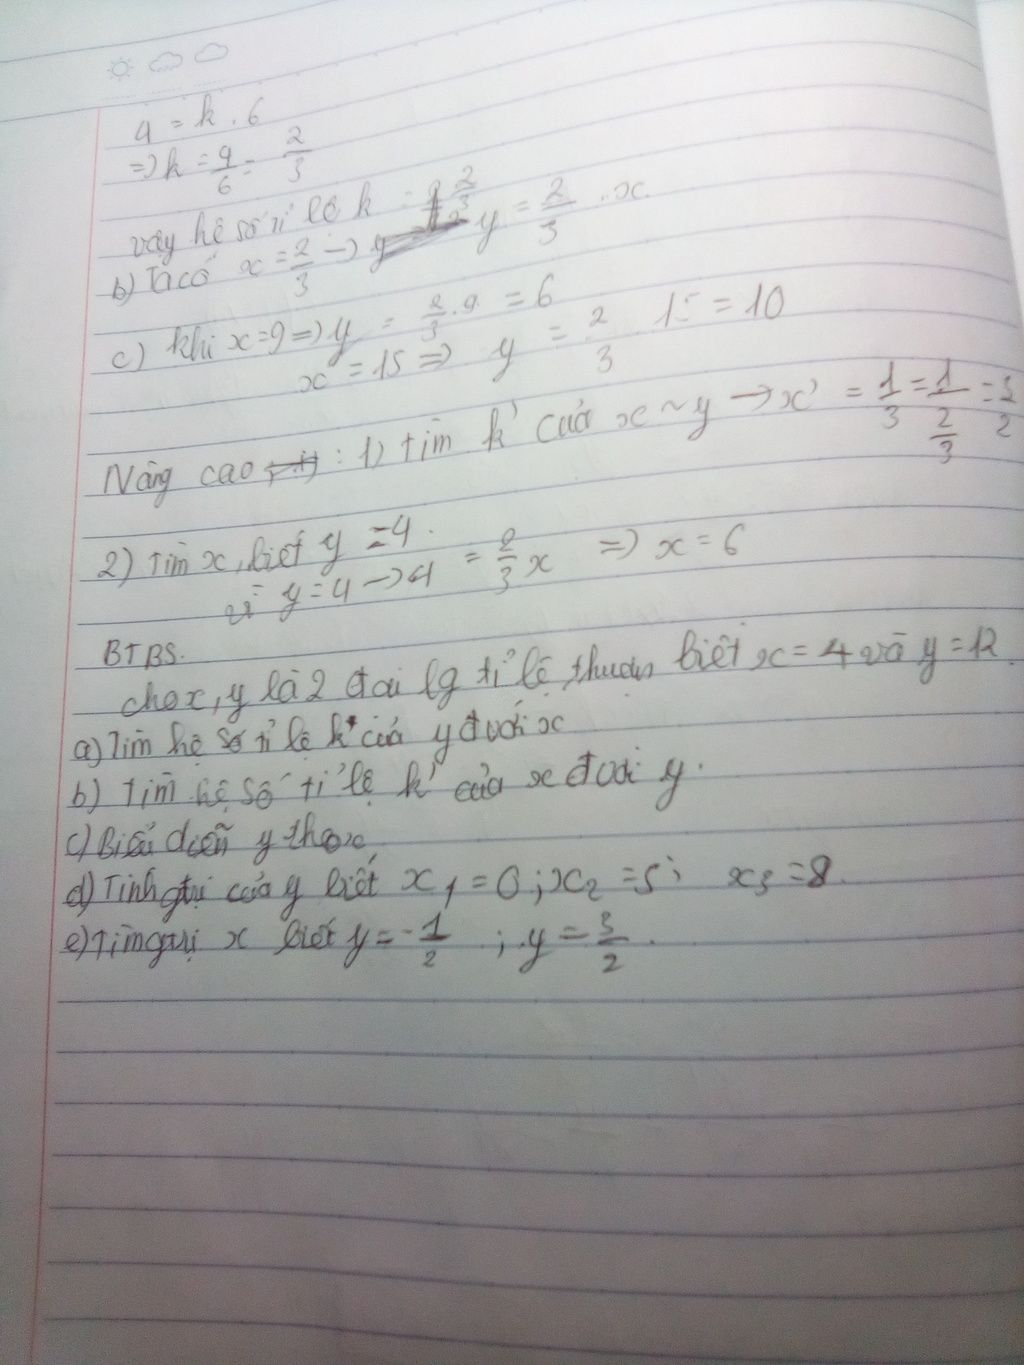 4 = k . 6
=> k = 4/6 = 2/3
vậy hệ số tỉ lệ k = 2/3
b) Ta có x = 2/3 -> y = 2/3 . x
c) khi x = 9 => y = 2/3 . 9 = 6
x = 15 => y = 2/3 15 = 10
Nâng cao : 1) tìm k' của x ~ y -> x' = 1/3 = 1/(2/3) = 3/2
2) Tìm x, biết y = 4.
vì y = 4 -> 4 = 2/3 x => x = 6
BTBS.
cho x, y là 2 đại lg tỉ lệ thuận biết x = 4 và y = 12
a) Tìm hệ số tỉ lệ k của y đ với x
b) Tìm hệ số tỉ lệ k' của x đ với y.
c) Biểu diễn y theo x
d) Tính gtrị của y biết x1 = 0 ; x2 = 5 ; x3 = 8.
e) Tìm gtrị x biết y = -1/2 ; y = 3/2.